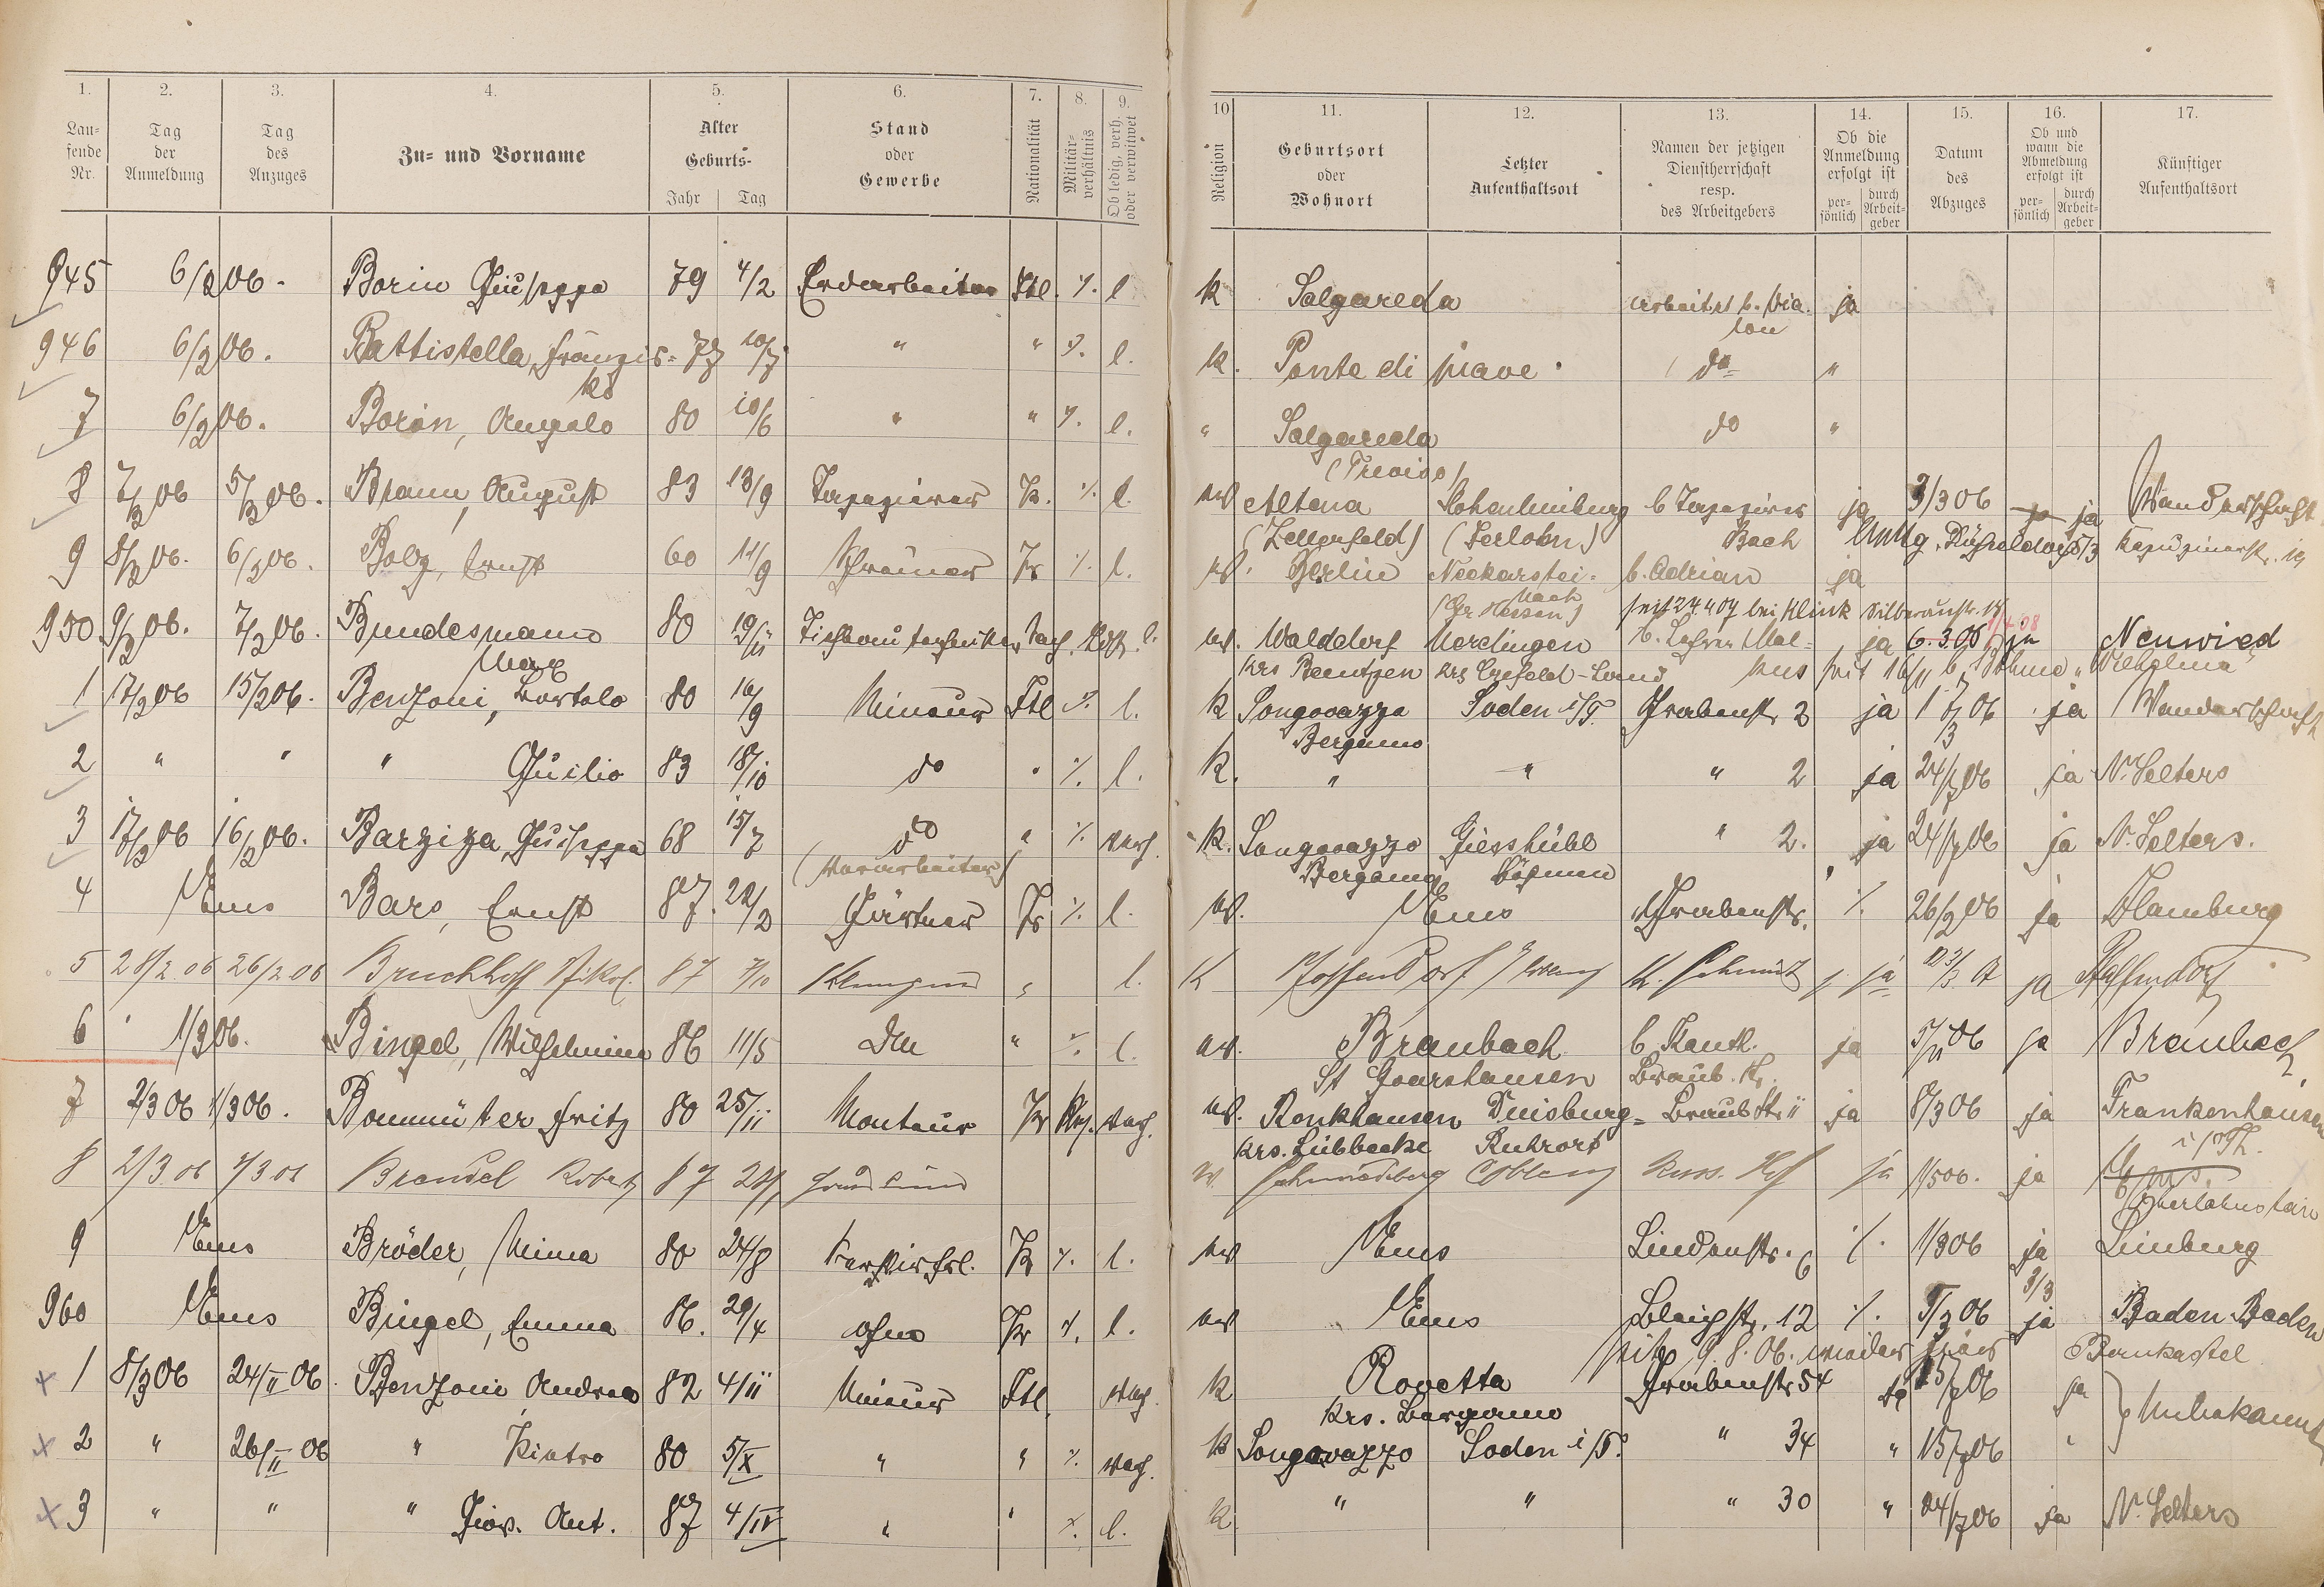 1. 2. 3. 4. 5. 6. 7. 8. 9.
Laufende Nr. Tag der Anmeldung Tag des Anzuges Zu- und Vorname Alter Geburts- Jahr Tag Stand oder Gewerbe Nationalität Militärverhältnis Ob ledig, verh. oder verwitwet
10 11. 12. 13. 14. 15. 16. 17.
Religion Geburtsort oder Wohnort Letzter Aufenthaltsort Namen der jetzigen Dienstherrschaft resp. des Arbeitgebers Ob die Anmeldung erfolgt ist persönlich durch Arbeitgeber Datum des Abzuges Ob und wann die Abmeldung erfolgt ist persönlich durch Arbeitgeber Künftiger Aufenthaltsort
945 6/2 06. Borin Giuseppe 79 4/2 Erdarbeiter Itl. %. l k Salgareda ja
946 6/2 06. Battistella, Franzis=ko 10/7 " " %. l. k. Ponte di piave do "
7 6/2 06. Borin, Angelo 80 10/6 " " %. l. " Salgareda (Treviso) do "
8 7/2 06 5/2 06. Braun, August 83 13/9 Tapezierer Pr. %. l. ev Altena Hohenlimburg (Iserlohn) b Tapezierer Bach ja 3/3 06 ja Wanderschaft
9 8/2 06. 6/2 06. Bolz, Ernst 60 11/9 Schreiner Pr %. l. ev. (Zellerfeld) Berlin Neckarsteinach (Gr. Hessen) b. Adrian ja
seit 24 4 07 bei Klink Silberaustr.
950 9/2 06. 7/2 06. Bundesmann Max 80 19/11 Tiefbautechniker l. ev. Walddorf Merdingen b. Lehrer Mal= ja 6.3.06 ja Neuwied
Krs Crefeld-Land kus seit 16/11 b. Böhme "Wilhelma"
1 17/2 06 15/2 06. Benzoni, Bortolo 80 16/9 Mineur Itl %. l. k Songavazzo Bergamo Soden i/T. Grabenstr 2 ja ja Wanderschaft
2 " " " Guilio 83 18/10 do " %. l. k. " " " 2 ja 24/7 06 ja N. Selters
3 17/2 06 16/2 06. Barziza, Guiseppe 68 15/7 do (Vorarbeiter) " % verh. k. Songavazzo Bergamo Giesshübl Böhmen " 2. ja 24/7 06 ja N. Selters.
4 Ems Bars, Ernst 87. 22/2 Gärtner Pr %. l. ev. Ems Grabenstr. %. 26/2 06 ja Hamburg
5 28/2.06 26/2.06 Bruchhoff Nikol. 87 7/10 Klempner " l. K Pfaffendorf K. Schmidt ja ja Pfaffendorf
6 1/3 06. Bingel, Wilhelmine 86 11/5 DM " %. l. ev. Braubach St Goarshausen b. Kantl. Braub. Str. ja 5/11 06 ja Braubach
7 2/3 06 1/3 06. Bommüter Fritz 80 25/11 Monteur Pr verh. ev. Ronkhausen Krs. Lübbecke Duisburg=Ruhrort Braub Str 11 ja 8/3 06 ja Frankenhausen i/Th.
8 2/3.06 1/3.06 Brendel Robert 87 Coblenz Russ. Hof ja 1/5 06. ja Ems. Oberlahnstein
9 Ems Bröder, Minna 80 24/8 Pr %. l. ev Ems Lindenstr. 6 %. 1/3 06 ja Limburg
960 Ems Bingel, Emma 86. 29/4 ohne Pr %. l. ev Ems Bleichstr. 12 %. 5/3 06 3/3 ja Baden Baden
seit 9.8.06. wieder hier Bernkastel
1 8/3 06 24/II 06. Benzoni Andreas 82 4/11 Mineur Itl. verh. k Rovetta Krs. Bergamo Grabenstr 54 ja 15/7 06 ja Unbekannt
2 " 26/II 06 " Pietro 80 5/X " " %. verh. k Songavazzo Soden i/T. " 34 " 15/7 06 "
3 " " " Giov. Ant. 87 4/IV " " %. l. k " " " 30 " 24/7 06 ja N. Selters